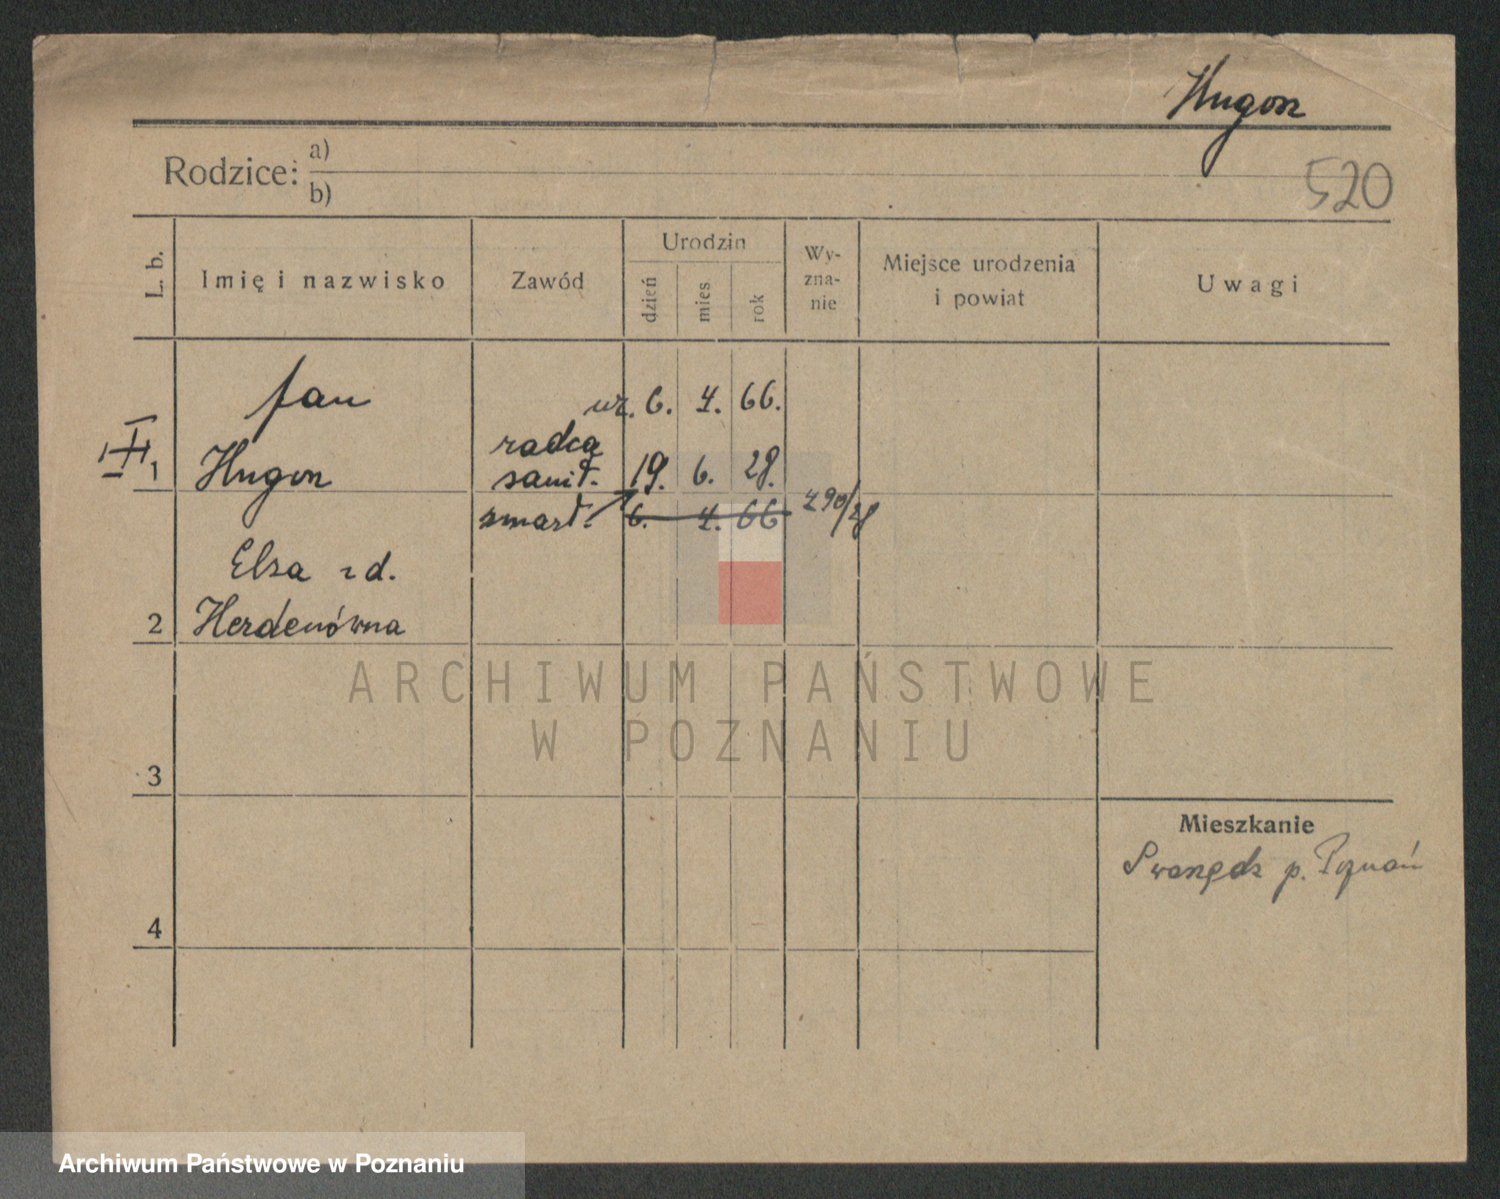 Hugon
520
Rodzice: a)
b)
L. b.
Imię i nazwisko
Zawód
Urodzin
dzień
mies
rok
Wy-
zna-
nie
Miejsce urodzenia
i powiat
Uwagi
Jan ur. 6. 4. 66.
III 1 Hugon radca
sanit. 19. 6. 28.
zmarł. 6. 4. 66 290/28
Elsa z d.
2 Herdenówna
3
4
Mieszkanie
Swarzędz p. Poznań
ARCHIWUM PAŃSTWOWE
W POZNANIU
Archiwum Państwowe w Poznaniu